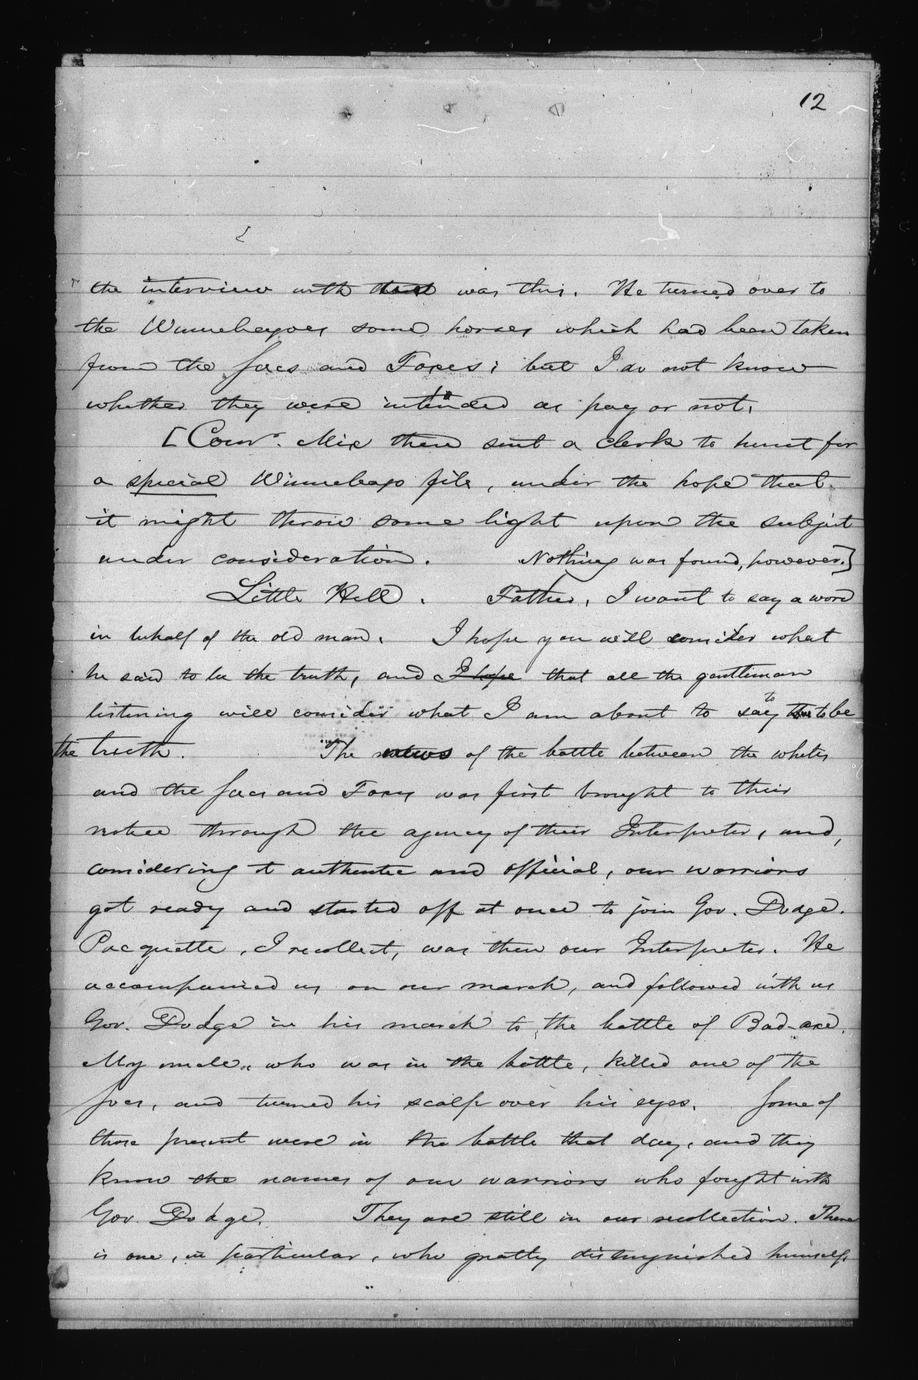 12
the interview with was this. He turned over to
the Winnebagoes some horses which had been taken
from the Sacs and Foxes; but I do not know
whether they were intended as pay or not.
[Comr. Mix then sent a clerk to hunt for
a special Winnebago file, under the hope that
it might throw some light upon the subject
under consideration. Nothing was found, however.]
Little Hill. Father, I want to say a word
in behalf of the old man. I hope you will consider what
he said to be the truth, and I hope that all the gentleman
listening will consider what I am about to say to be
the truth. The news of the battle between the whites
and the Sacs and Foxes was first brought to their
notice through the agency of their Interpreter, and,
considering it authentic and official, our warriors
got ready and started off at once to join Gov. Dodge.
Pacquette, I recollect, was then our Interpreter. He
accompanied us on our march, and followed with us
Gov. Dodge in his march to the battle of Bad-axe.
My uncle, who was in the battle, killed one of the
Sacs, and turned his scalp over his eyes. Some of
those present were in the battle that day, and they
know the names of our warriors who fought with
Gov. Dodge. They are still in our recollection. There
is one, in particular, who greatly distinguished himself,